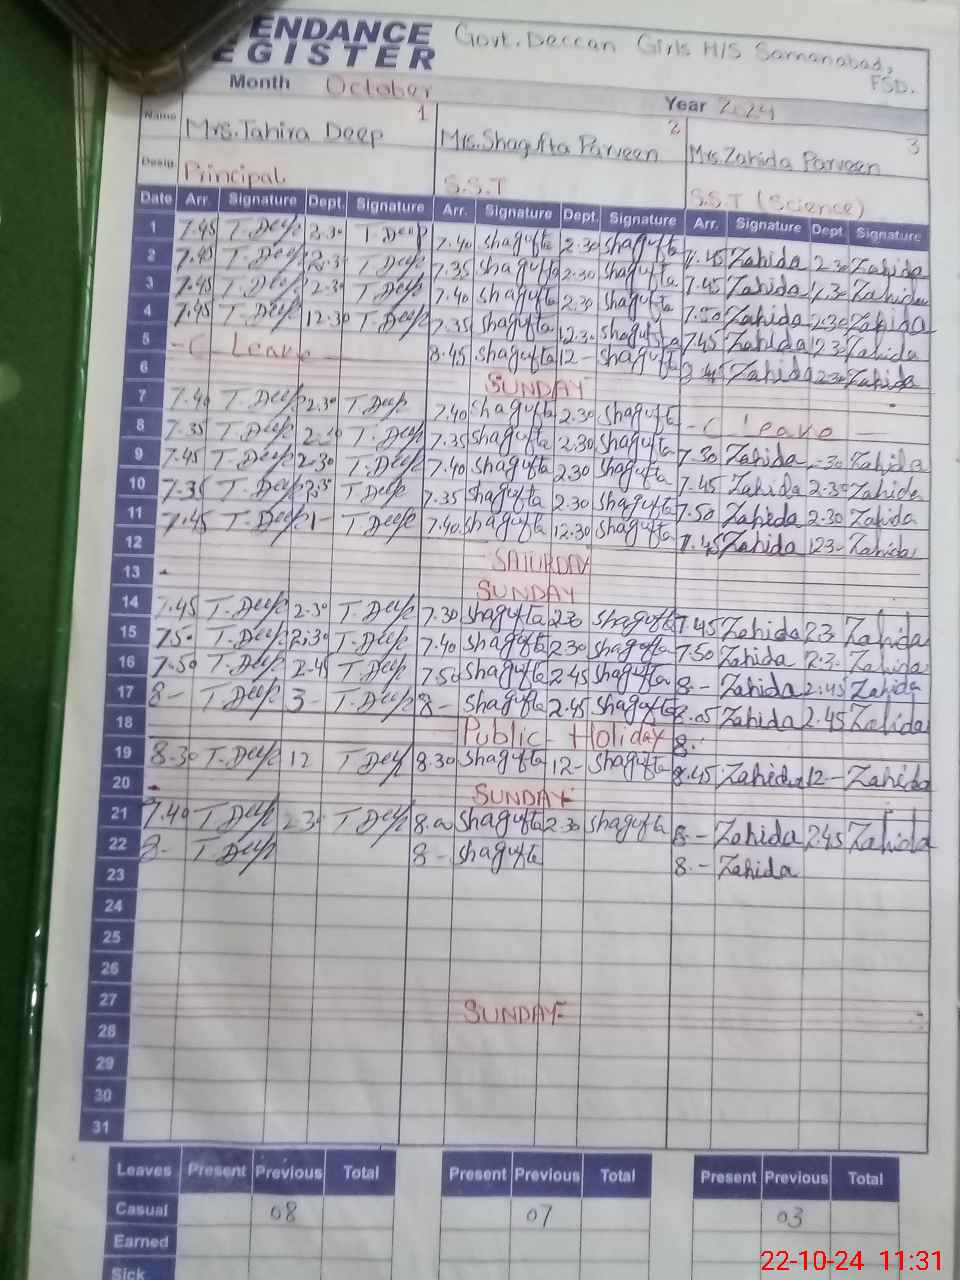 ENDANCE Govt. Deccan Girls H/S Samanabad,
EGISTER FSD.
Month October Year 2024
Name Mrs.Tahira Deep 1 Mrs.Shagufta Parveen 2 Mrs.Zahida Parveen 3
Desig. Principal S.S.T S.S.T (Science)
Date Arr. Signature Dept. Signature Arr. Signature Dept. Signature Arr. Signature Dept. Signature
1 7.45 T.Deep 2.30 T.Deep 7.40 Shagufta 2.30 Shagufta 7.45 Zahida 2.30 Zahida
2 7.45 T.Deep 2.3 T.Deep 7.35 Shagufta 2.30 Shagufta 7.45 Zahida Zahida
3 7.45 T.Deep 2.30 T.Deep 7.40 Shagufta 2.30 Shagufta 7.50 Zahida 2.30 Zahida
4 7.45 T.Deep 12.30 T.Deep 7.35 Shagufta 12.30 Shagufta 7.45 Zahida Zahida
5 - C Leave 8.45 Shagufta 12 - Shagufta Zahida Zahida
6 SUNDAY
7 7.40 T.Deep 2.30 T.Deep 7.40 Shagufta 2.30 Shagufta - C Leave -
8 7.35 T.Deep 2.30 T.Deep 7.35 Shagufta 2.30 Shagufta 7.30 Zahida Zahida
9 7.45 T.Deep 2.30 T.Deep 7.40 Shagufta 2.30 Shagufta 7.45 Zahida 2.30 Zahida
10 7.35 T.Deep T.Deep 7.35 Shagufta 2.30 Shagufta 7.50 Zahida 2.30 Zahida
11 7.45 T.Deep 1- T.Deep 7.40 Shagufta 12.30 Shagufta 7.45 Zahida 123- Zahida
12 SATURDAY
13 SUNDAY
14 7.45 T.Deep 2.30 T.Deep 7.30 Shagufta 2.30 Shagufta 7.45 Zahida 2.3 Zahida
15 7.50 T.Deep 2.30 T.Deep 7.40 Shagufta 2.30 Shagufta 7.50 Zahida 2.3. Zahida
16 7.50 T.Deep 2.45 T.Deep 7.50 Shagufta 2.45 Shagufta 8.- Zahida 2.45 Zahida
17 8- T.Deep 3- T.Deep 8- Shagufta 2.45 Shagufta 8.05 Zahida 2.45 Zahida
18 Public Holiday 8.
19 8.30 T.Deep 12 T.Deep 8.30 Shagufta 12- Shagufta 8.45 Zahida 12- Zahida
20 SUNDAY
21 7.40 T.Deep 2.30 T.Deep 8.00 Shagufta 2.30 Shagufta 8.- Zahida 2.45 Zahida
22 8- T.Deep 8- Shagufta 8.- Zahida
23
24
25
26
27 SUNDAY
28
29
30
31
Leaves Present Previous Total Present Previous Total Present Previous Total
Casual 08 07 03
Earned
Sick
22-10-24 11:31